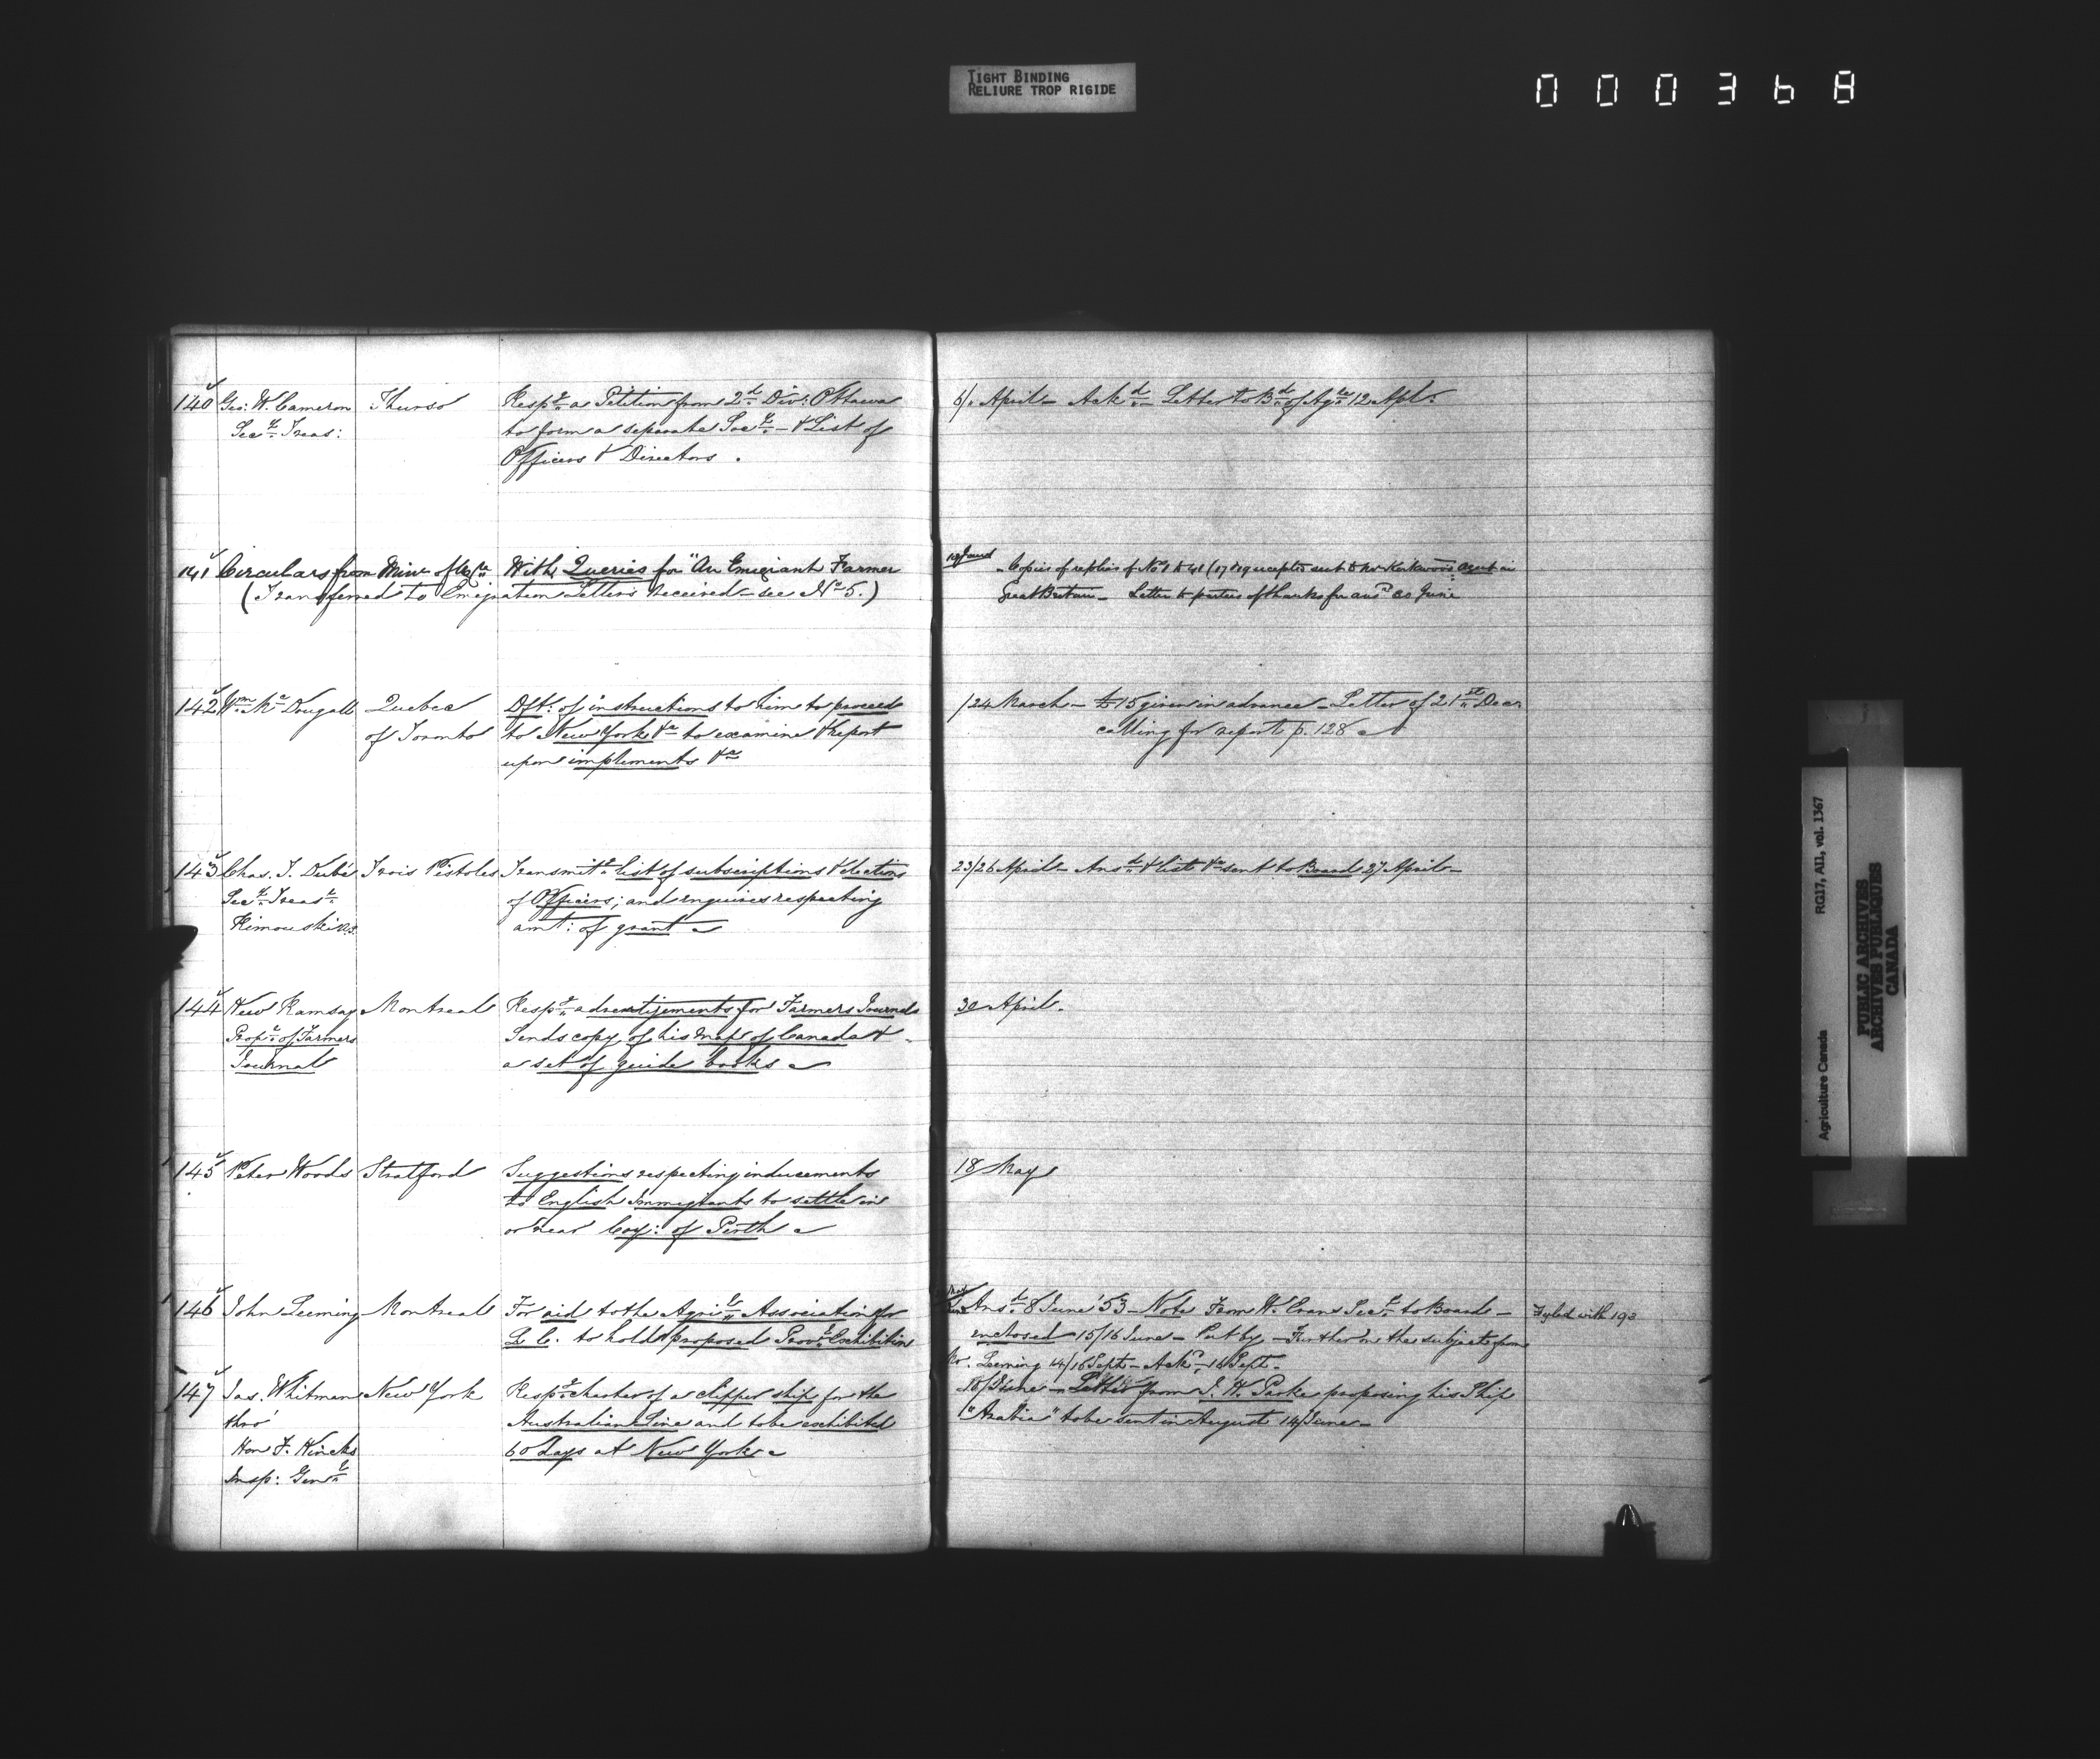 TIGHT BINDING
RELIURE TROP RIGIDE
000368
140 Geo: W. Cameron Thurso Respg a Petition from 2d Div: Ottawa
Secy Treas: to form a separate Socy – & List of
Officers & Directors.
6/. April – Ackd – Letter to Bd of Agre 12 Apl:
141 Circulars from Minr of Agre With Queries for "An Emigrant Farmer
(Transferred to Emigration Letters Received – see No 5.)
Copies of replies of No 1 to 41 (17 & 19 excepted sent to Mr Kirkwood agent in
Great Britain – Letter to parties of thanks for 20 June
142 Wm McDougall Quebec Dft: of instructions to him to proceed
of Toronto to New York &c to examine & report
upon implements &c
/24 March – £15 given in advance – Letter of 21st Decr
calling for report p. 128
143 Chas. T. Dubé Trois Pistoles Transmitg list of subscriptions & elections
Secy Treasr of Officers; and enquires respecting
Rimouski amt: of grant
23/26 April – Ansd & list &c sent to Board 27 April –
144 Hew Ramsay Montreal Respg advertisements for Farmers Journal
Propr of Farmers Sends copy of his map of Canada &
Journal a set of guide books
30 April.
145 Peter Woods Stratford Suggestions respecting inducements
to English Immigrants to settle in
or near Coy: of Perth
18 May
146 John Leeming Montreal For aid to the Agril Association for
L. C. to hold proposed Provl Exhibition
Ansd 8 June '53 – Note From W. Evans Secy to Board –
enclosed 15/16 June – Put by – Further on the subject from
Mr. Leeming 14/16 Sept – Ackd 16 Sept –
Fyled with 193
147 Jas. Whitman New York Respg charter of a clipper ship for the
thro' Australian Line and to be exhibited
Hon F. Hincks 60 days at New York
Insp: Genl
10/June – Letter from J. W. Parke proposing his Ship
"Arabia" to be sent in August 14 June –
Agriculture Canada RG17, AII, vol. 1367
PUBLIC ARCHIVES
ARCHIVES PUBLIQUES
CANADA